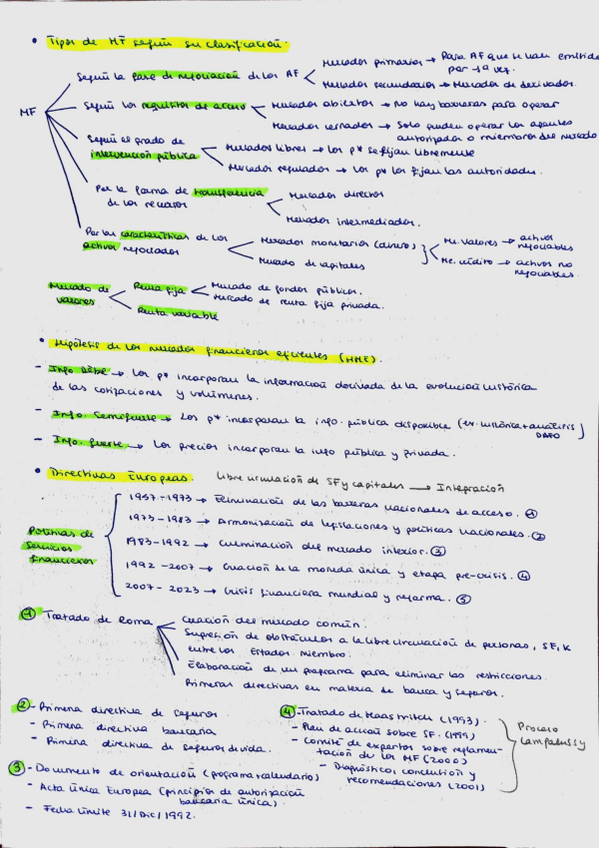 • Tipos de MF según su clasificación.
MF
Según la fase de negociación de los AF
Mercados primarios → Para AF que se van emitido por 1ª vez.
Mercados secundarios → Mercado de derivados.
Según los requisitos de acceso
Mercados abiertos → No hay barreras para operar
Mercados cerrados → Solo pueden operar los agentes
autorizados o miembros del mercado
Según el grado de
intervención pública
Mercados libres → Los p* se fijan libremente
Mercados regulados → Los p* los fijan las autoridades.
Por la forma de transferencia
de los recursos
Mercados directos
Mercados intermediados.
Por las características de los
activos negociados
Mercados monetarios (dinero)
Mercado de capitales
Me. valores → activos
negociables
Me. crédito → activos no
negociables.
Mercado de
valores
Renta fija
Mercado de fondos públicos.
Mercado de renta fija privada.
Renta variable
• Hipótesis de los mercados financieros eficientes (HME).
- Info. Débil → Los p* incorporan la información derivada de la evolución histórica
de las cotizaciones y volúmenes.
- Info. Semifuerte → Los p* incorporan la info. pública disponible (ev. histórica + análisis)
- Info. fuerte → Los precios incorporan la info pública y privada.
• Directivas Europeas. Libre circulación de SF y capitales → Integración
Políticas de
Servicios
financieros
1957-1973 → Eliminación de las barreras nacionales de acceso. ①
1973-1983 → Armonización de legislaciones y políticas nacionales. ②
1983-1992 → Culminación del mercado interior. ③
1992-2007 → Creación de la moneda única y etapa pre-crisis. ④
2007-2023 → Crisis financiera mundial y reforma. ⑤
① Tratado de Roma
Creación del mercado común.
Supresión de obstáculos a la libre circulación de personas, SF, K
entre los Estados miembro.
Elaboración de un programa para eliminar las restricciones.
Primeras directivas en materia de banca y seguros.
② - Primera directiva de seguros
- Primera directiva bancaria
- Primera directiva de seguros de vida.
③ - Documento de orientación (programa + calendario)
- Acta Única Europea (principios de autorización
bancaria única)
- Fecha límite 31/Dic/1992.
④ - Tratado de Maastritch (1993).
- Plan de acción sobre SF. (1999)
- Comité de expertos sobre reglamen-
tación de los MF (2000)
- Diagnóstico, conclusión y
recomendaciones (2001)
Proceso
Lamfalussy